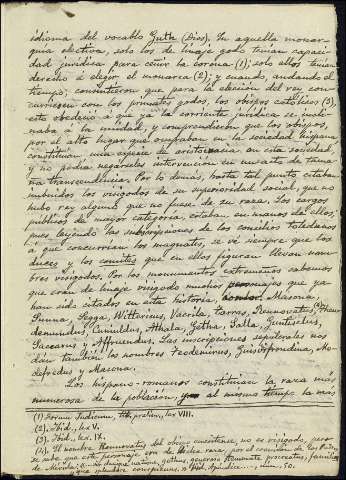 idioma del vocablo Guth (Dios). En aquella monar-
quía electiva, solo los de linaje godo tenían capaci-
dad jurídica para ceñir la corona (1); solo ellos tenían
derecho á elegir el monarca (2); y cuando, andando el
tiempo, consintieron que para la elección del rey con-
curriesen con los primates godos, los obispos católicos (3),
esto obedeció á que ya la corriente jurídica se incli-
naba á la unidad, y comprendieron que los obispos,
por el alto lugar que ocupaban en la sociedad hispana
constituían una especie de aristocracia en esta sociedad,
y no podía negárseles intervención en un acto de tama-
ña transcendencia. Por lo demás, hasta tal punto estaban
imbuidos los visigodos de su superioridad social, que no
hubo rey alguno que no fuese de su raza. Los cargos
públicos de mayor categoría, estaban en manos de ellos;
pues leyendo las subscripciones de los concilios toledanos
á que concurrían los magnates, se vé siempre que los
duces y los comites que en ellos figuran llevan nom-
bres visigodos. Por los monumentos extremeños sabemos
que eran de linaje visigodo muchos personajes que ya
han sido citados en esta historia, Masona,
Sunna, Segga, Wittericus, Vacrila, Carras, Rennovatus (4), Theu-
demundus, Linuldus, Athala, Getha, Galla,
Saccarus y Affruendus. Las inscripciones sepulcrales nos
dan también los nombres Teodemirus, Mo-
defredus y Masona.
Los hispano-romanos constituían la raza más
numerosa de la población, y al mismo tiempo la más
(1) Forum Judicum, lex VIII.
(2) Ibid., lex V.
(3) Ibid., lex IX.
(4) El nombre Rennovatus del obispo emeritense, no es visigodo, pero
se sabe que este personaje era de dicha raza, por el
de Mérida: natione gothus, generoso procreatus, familiae
splendore conspicuus.